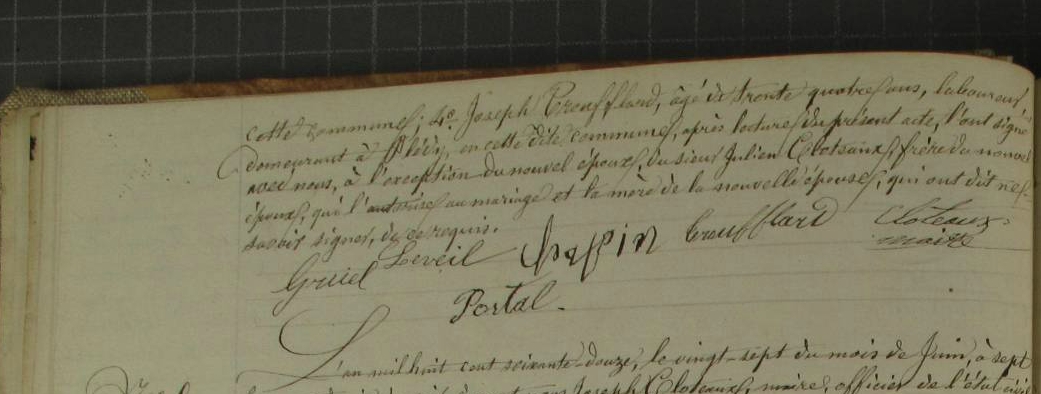 cette commune, 4° Joseph Croufflard, âgé de trente quatre ans, laboureur
demeurant à en cette dite commune, après lecture du présent acte, l'ont signé
avec nous, à l'exception du nouvel époux, du sieur Julien Cloteaux, frère du nouvel
époux, qui l'autorise au mariage et la mère de la nouvelle épouse, qui ont dit ne
savoir signer, de ce requis.
Gruel Leveil Croufflard Cloteaux
maire
Portal.
L'an mil huit cent soixante-douze, le vingt-sept du mois de Juin, à sept
Joseph Cloteaux, maire, officier de l'état civil